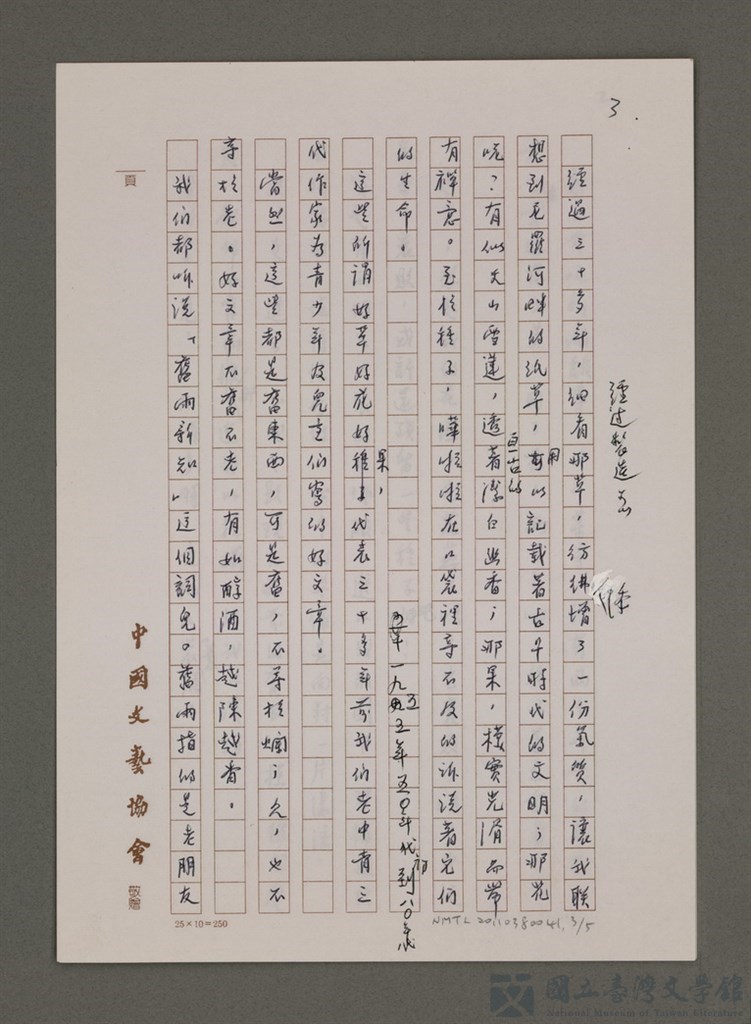 3.
經過製造
經過三十多年，細看那草，彷彿增了一份氣質，讓我聯
想到尼羅河畔的紙草，用以記載著古早時代的文明；那花
呢？有似天山雪蓮，透著潔白幽香；那果，樸實光滑而帶
亙古的
有禪意。至於種子，嘩啦啦在口袋裡等不及的訴說著它們
的生命。
一九五五年五〇年代初到八〇年代
這些所謂好草好花好果，種子代表三十多年前我們老中青三
代作家為青少年及兒童們寫的好文章。
當然，這些都是舊東西，可是舊，不等於爛；久，也不
等於老。好文章不舊不老，有如醇酒，越陳越香。
我們都聽說「舊雨新知」這個詞兒。舊雨指的是老朋友
頁
中國文藝協會 敬贈
25×10=250
NMTL 20110380041, 3/5
國立臺灣文學館
National Museum of Taiwan Literature